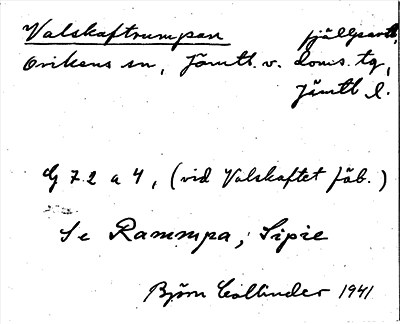 Valskaftrumpan fjällparti,
Ovikens sn, Jämtl. v. doms. tg,
Jämtl l.
G 7 2 a 4, (vid Valskaftet fäb.)
Se Rammpa, Sipie
Björn Collinder 1941